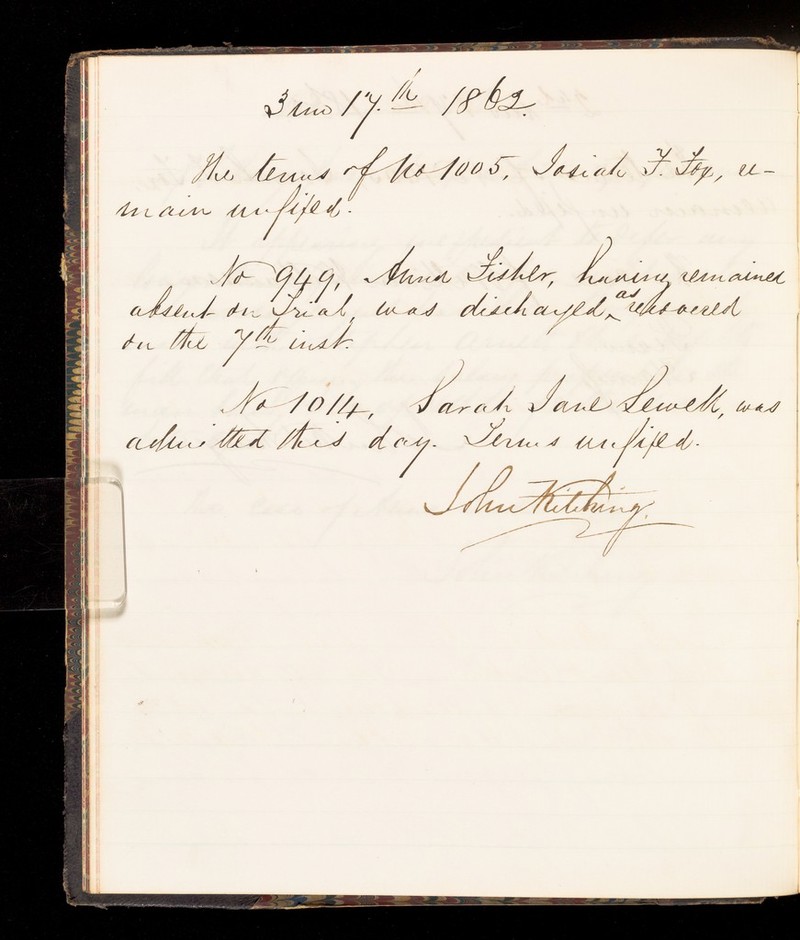 3 mo 17.th 1862.
The terms of No 1005, Josiah F. Fox, re-
main unfixed.
No 949, Anna Fisher, having remained
absent on Trial, was discharged, as recovered
on the 7th inst.
No 1014, Sarah Jane Sewell, was
admitted this day. Terms unfixed.
John Kitching.